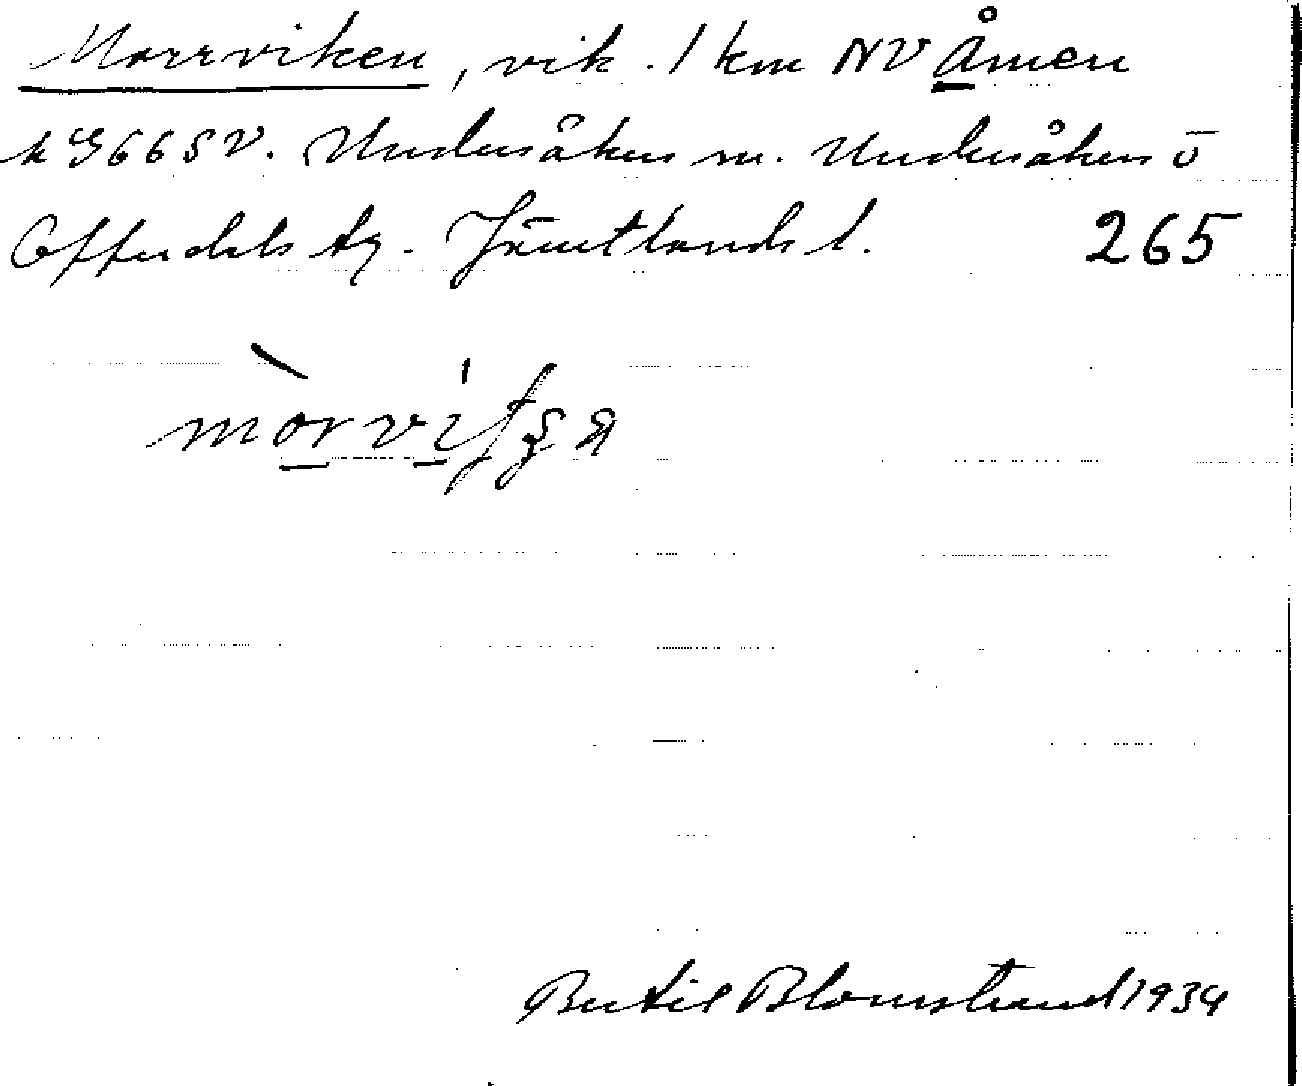 Morrviken, vik. 1 km NV Åmen
k G66SV. Undersåkers sn. Undersåkers o
Offerdals tg. Jämtlands l. 265
Bertil Blomstrand 1934